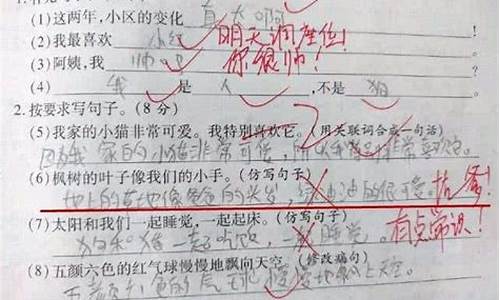 (1)这两年,小区的变化 真大啊
(2)我最喜欢 小红 明天调座位!
(3)阿姨,我 帅吧 你很帅!
(4) 我 是 人 ,不是 狗
2.按要求写句子。(8分)
(5)我家的小猫非常可爱。我特别喜欢它。(用关联词合成一句话)
因为我家的小猫非常可爱,所以我特别非常喜欢它。
(6)枫树的叶子像我们的小手。(仿写句子)
地上的草地像爸爸的头发,绿油油的很可爱。
(7)太阳和我们一起睡觉,一起起床。(仿写句子)
一起吃饭,一起睡觉。有点常识!
(8)五颜六色的红气球慢慢地飘向天空。(修改病句)
五颜六色的气球慢慢地飘上天空。